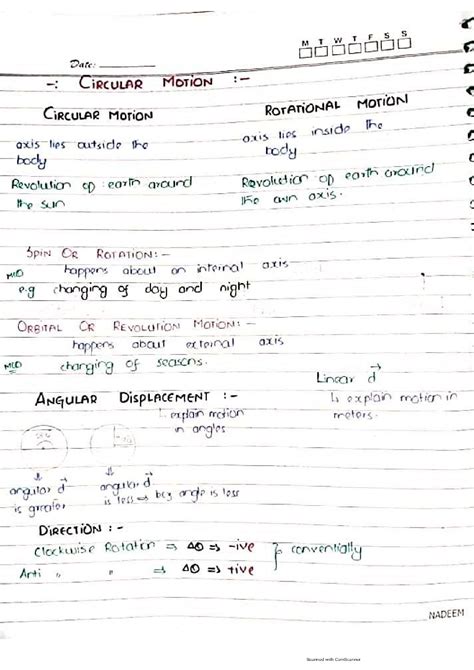 M T W T F S S
Date:
-: CIRCULAR MOTION :-
CIRCULAR MOTION
axis lies outside the
body
Revolution of earth around
the sun
ROTATIONAL MOTION
axis lies inside the
body
Revolution of earth around
the own axis.
SPIN OR ROTATION:-
happens about an internal axis
e.g changing of day and night
ORBITAL OR REVOLUTION MOTION:-
happens about external axis
changing of seasons.
ANGULAR DISPLACEMENT :-
explain motion
in angles
Linear d
↳ explain motion in
meters.
angular d
is greater
angular d
is less ⇒ bcz angle is less
DIRECTION :-
Clockwise Rotation ⇒ Δθ ⇒ -ive
Anti " " ⇒ Δθ ⇒ +ive
} conventially
NADEEM
Scanned with CamScanner